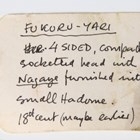 FUKURU-YARI
4 SIDED, compact
socketted head with
Nagaye furnished with
small Hadome.
18th cent (maybe earlier)